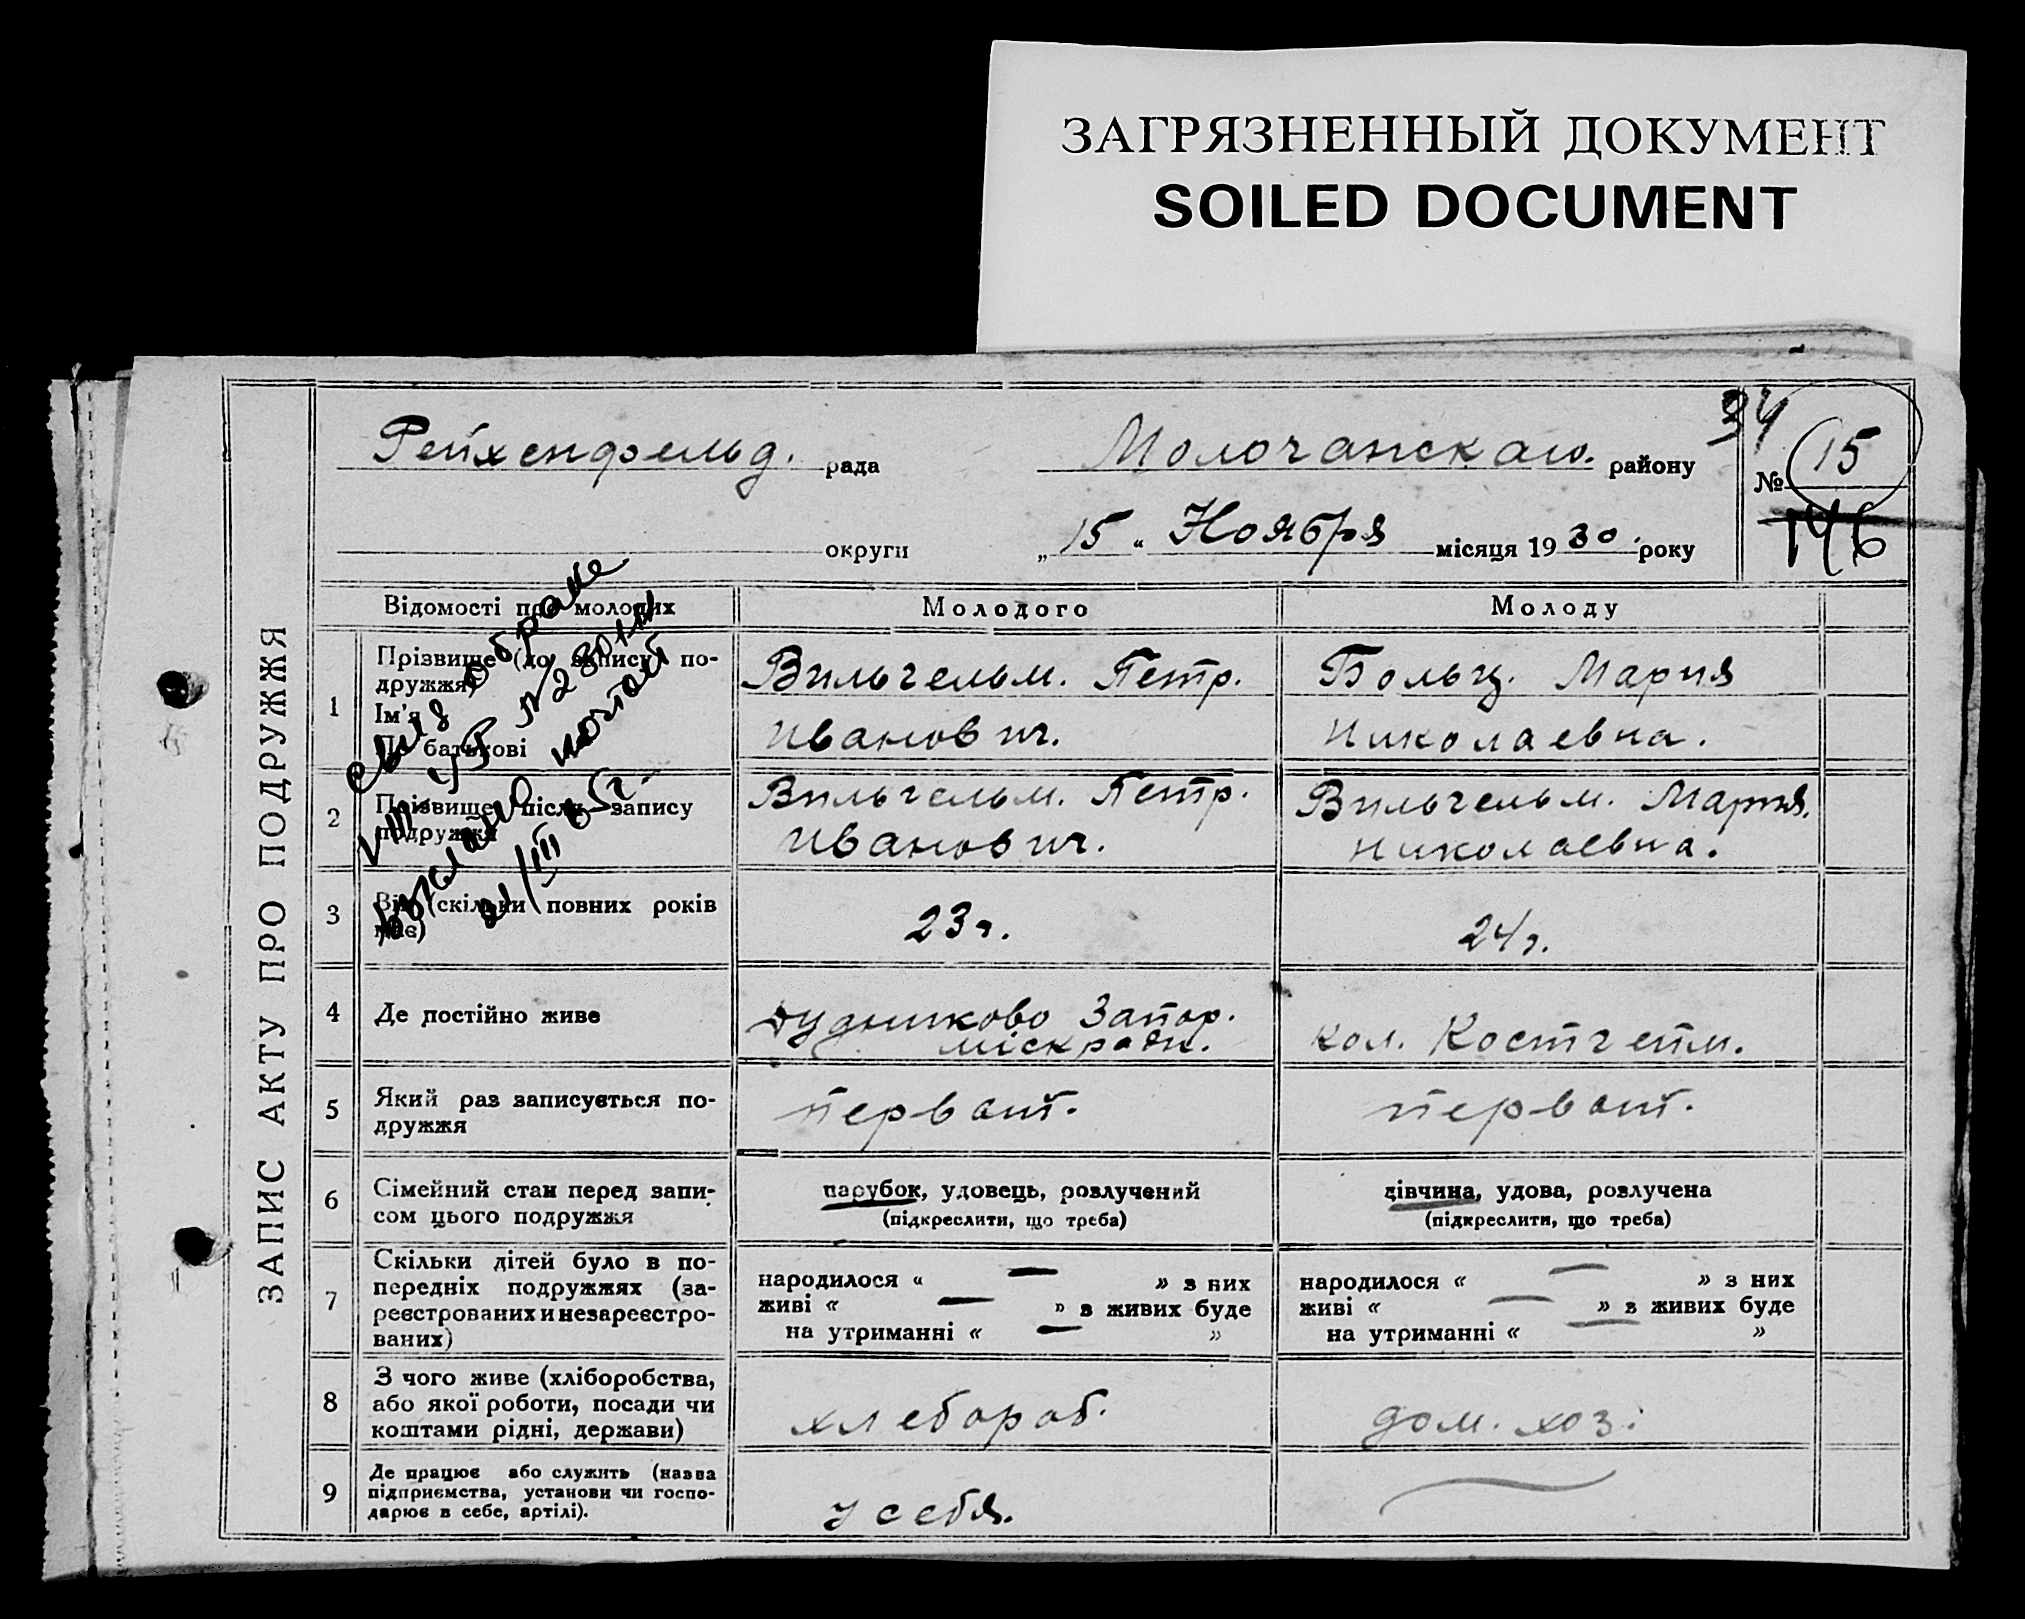 ЗАГРЯЗНЕННЫЙ ДОКУМЕНТ
SOILED DOCUMENT
ЗАПИС АКТУ ПРО ПОДРУЖЖЯ
Рейхенфельд. рада Молочанскаго. району
34
№ 15
146
округи „15“ Ноября місяця 1930. року
Відомості про молодих Молодого Молоду
1 Прізвище (до запису по-
дружжя)
Ім'я
По батькові
Вильгельм. Петр.
Иванович.
Больц. Мария
Николаевна.
2 Прізвище після запису
подружжя
Вильгельм. Петр.
Иванович.
Вильгельм. Мария.
Николаевна.
3 Вік (скільки повних років
має)
23 г.
24 г.
4 Де постійно живе
Запор.
міскради.
кол. Костгейм.
5 Який раз записується по-
дружжя
первый.
первый.
6 Сімейний стан перед запи-
сом цього подружжя
парубок, удовець, розлучений
(підкреслити, що треба)
дівчина, удова, розлучена
(підкреслити, що треба)
7 Скільки дітей було в по-
передніх подружжях (за-
реєстрованих и незареєстро-
ваних)
народилося « — » з них
живі « — » з живих буде
на утриманні « — »
народилося « — » з них
живі « — » з живих буде
на утриманні « — »
8 З чого живе (хліборобства,
або якої роботи, посади чи
коштами рідні, держави)
хлебороб.
дом. хоз.
9 Де працює або служить (назва
підприємства, установи чи госпо-
дарює в себе, артілі).
у себя.